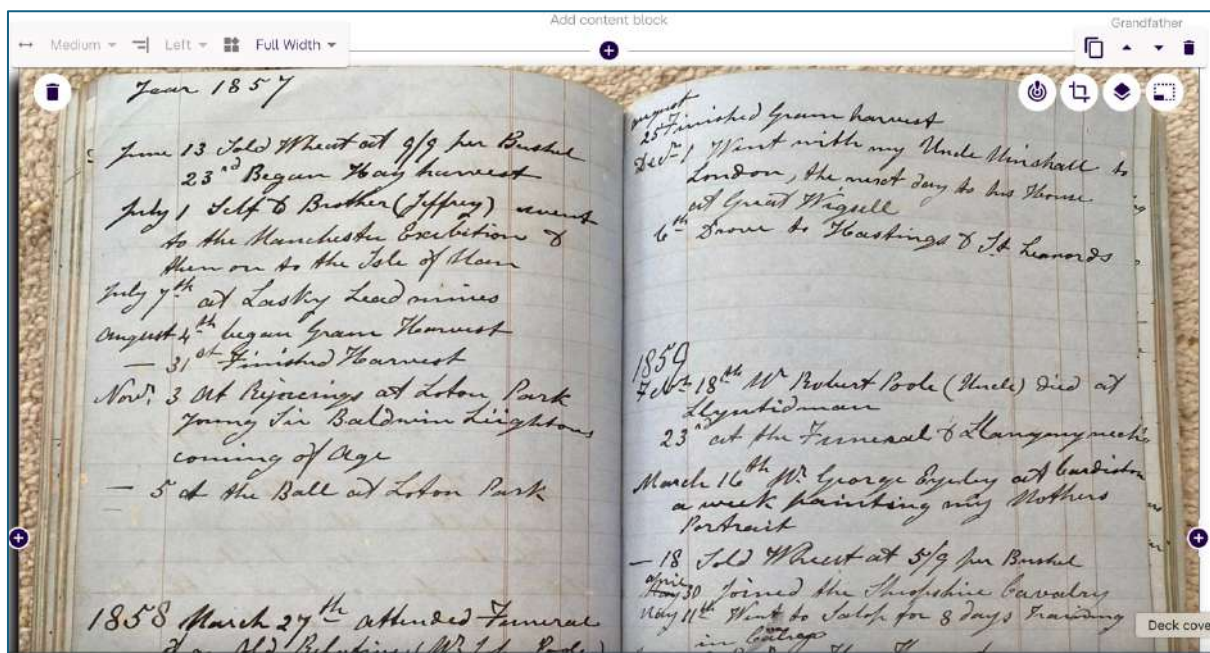 Add content block
Grandfather
Medium
Left
Full Width
Year 1857
June 13 Sold Wheat at 9/9 per Bushel
23rd Began Hay harvest
July 1 Self & Brother (Jeffrey) went
to the Manchester Exibition &
then on to the Isle of Man
July 7th at Laxky Lead mines
August 4th began Grain Harvest
— 31st Finished Harvest
Novr. 3 at Rejoicings at Loton Park
Young Sir Baldwin Leightons
coming of Age
— 5 at the Ball at Loton Park
1858 March 27th attended Funeral
Old Relative (Mr
August
25 Finished Grain harvest
Decr 1 Went with my Uncle Minshall to
London, the next day to his House
at Great Wigsell
6th Drove to Hastings & St Leanords
1859
18th Mr Robert Poole (Uncle) died at
Llyntidman
23rd at the Funeral
March 16th Mr George at Cardiston
a week painting my Mothers
Portrait
— 18 Sold Wheat at 5/9 per Bushel
April
30 Joined the Shropshire Cavalry
May 11th Went to Salop for 8 days Training
in
Deck cove